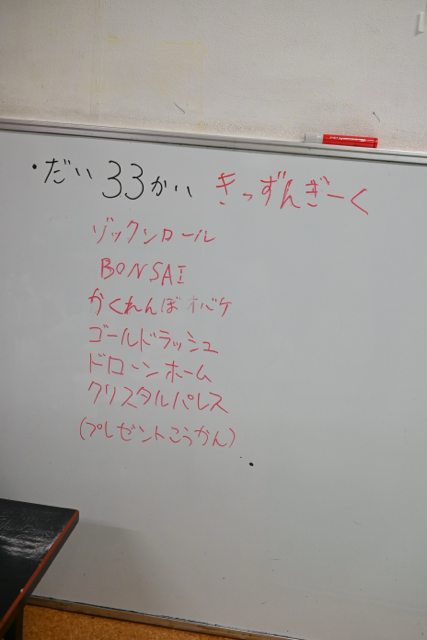 ・だい33かい きっずんぎーく
ゾックンロール
BONSAI
かくれんぼオバケ
ゴールドラッシュ
ドローンホーム
クリスタルパレス
(プレゼントこうかん)